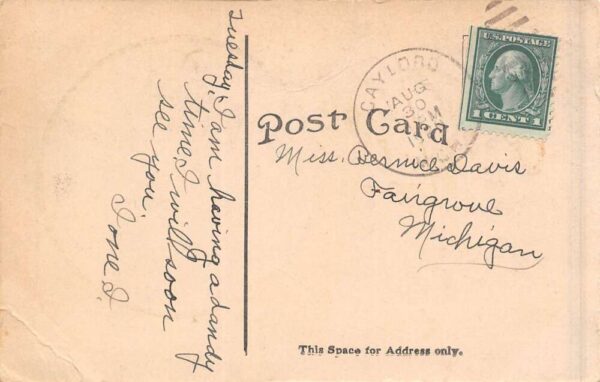 Tuesday,
I am having a dandy
time I will soon
see you.
Ione I.
GAYLORD
AUG
30
M
U.S. POSTAGE
1 CENT 1
Post Card
Miss. Bernice Davis
Fairgrove
Michigan
This Space for Address only.